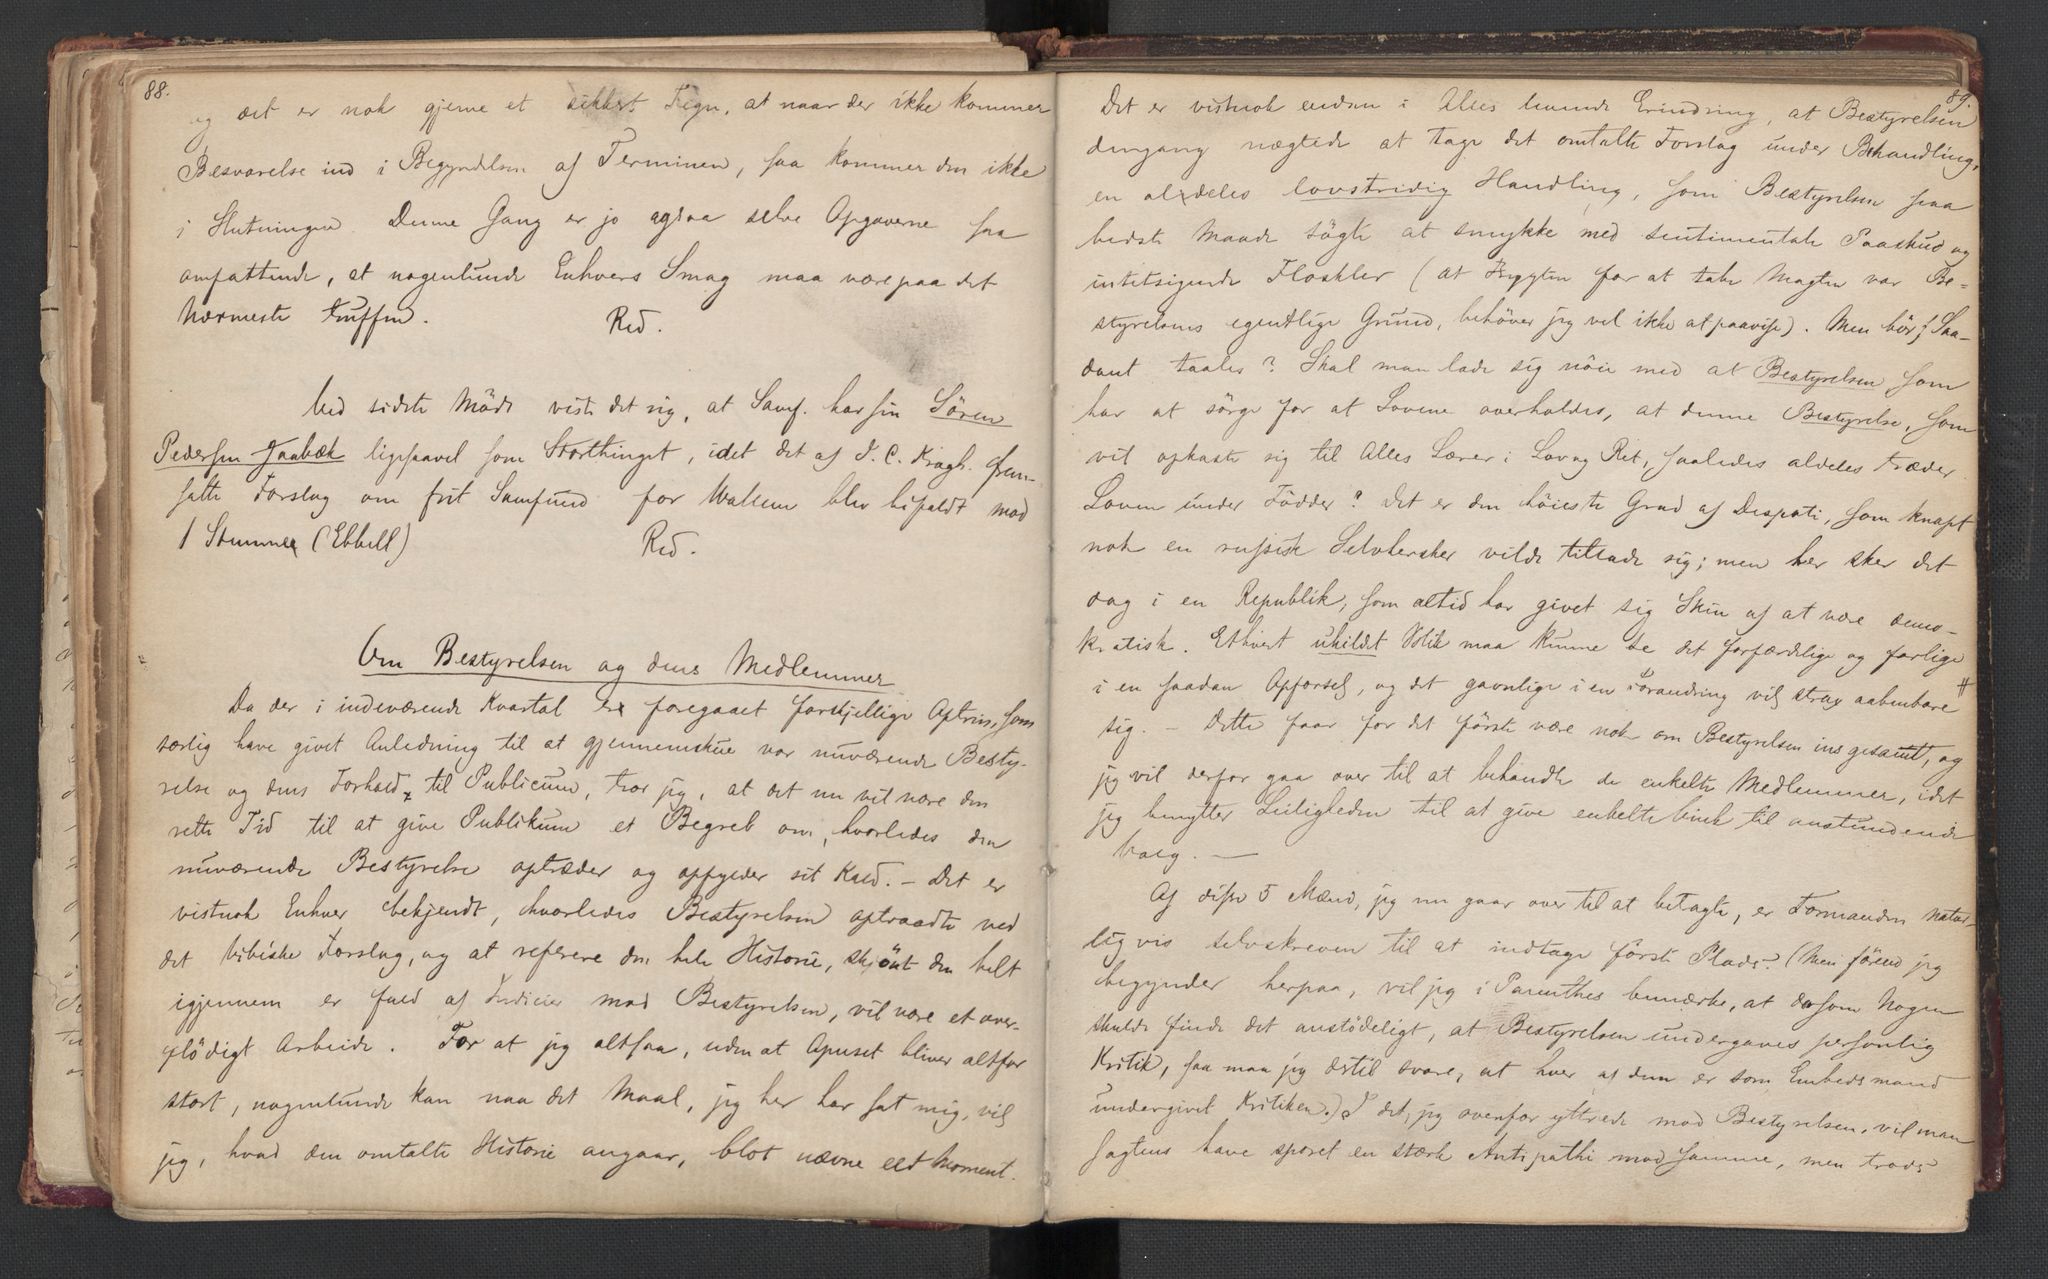 88.
og det er nok gjerne et sikkert Tegn, at naar der ikke kommer
Besvarelse ind i Begyndelsen af Terminen, saa kommer den ikke
i Slutningen. Denne Gang er jo ogsaa selve Opgaverne saa
omfattende, at nogenlunde Enhvers Smag maa være paa det
Nærmeste truffen. Red.
Ved sidste Möde viste det sig, at Samf. har sin Sören
Pedersen Jaabæk ligesaavel som Storthinget, idet det af J. C. Kragh. frem-
satte Forslag om frit Samfund for Wallem blev bifaldt mod
1 Stemme (Ebbell) Red.
Om Bestyrelsen og dens Medlemmer
Da der i indeværende Kvartal er foregaaet forskjellige Optrin, som
særlig have givet Anledning til at gjennemskue vor nuværende Besty-
relse og dens Forhold til Publicum, tror jeg, at det nu vil være den
rette Tid til at give Publikum et Begreb om, hvorledes den
nuværende Bestyrelse optræder og opfylder sit Kald. – Det er
vistnok Enhver bekjendt, hvorledes Bestyrelsen optraadte ved
det Forslag, og at referere den hele Historie, skjönt den helt
igjennem er fuld af Indicier mod Bestyrelsen, vil være et over-
flödigt Arbeide. For at jeg altsaa, uden at Opuset bliver altfor
stort, nogenlunde kan naa det Maal, jeg her har sat mig, vil
jeg, hvad den omtalte Historie angaar, blot nævne eet Moment.
89.
Det er vistnok endnu i Alles Erindring, at Bestyrelsen
dengang nægtede at tage det omtalte Forslag under Behandling,
en aldeles lovstridig Handling, som Bestyrelsen paa
bedste Maade sögte at smykke med sentimentale Paaskud og
intetsigende Floskler (at Frygten for at tabe Magten var Be-
styrelsens egentlige Grund, behöver jeg vel ikke at paavise). Men bör Saa-
dant taales? Skal man lade sig nöie med at Bestyrelsen som
har at sörge for at Lovene overholdes, at denne Bestyrelse, som
vil opkaste sig til Alles Lærer i Lov og Ret, saaledes aldeles træder
Loven under Födder? Det er den höieste Grad af Despoti, som knapt
nok en russisk Selvhersker vilde tillade sig; men her sker det
dog i en Republik, som altid har givet sig Skin af at være demo-
kratisk. Ethvert uhildet Blik maa kunne se det forfærdelige og farlige
i en saadan Opförsel, og det gavnlige i en Forandring vil strax aabenbare #
sig. – Dette faar for det förste være nok om Bestyrelsen ins gesamt, og
jeg vil derfor gaa over til at behandle de enkelte Medlemmer, idet
jeg benytter Leiligheden til at give enkelte Vink til anstundende
Valg. –
Af disse 5 Mænd, jeg nu gaar over til at betragte, er Formanden natur-
ligvis selvskreven til at indtage förste Plads. (Men förend jeg
begynder herpaa, vil jeg i Parenthes bemærke, at dersom Nogen
skulde finde det anstödeligt, at Bestyrelsen undergaves personlig
Kritik, saa maa jeg dertil svare, at hver af dem er som Embedsmand
undergivet Kritiken.) I det, jeg ovenfor yttrede mod Bestyrelsen, vil man
sagtens have sporet en stærk Antipathi mod samme, men trods